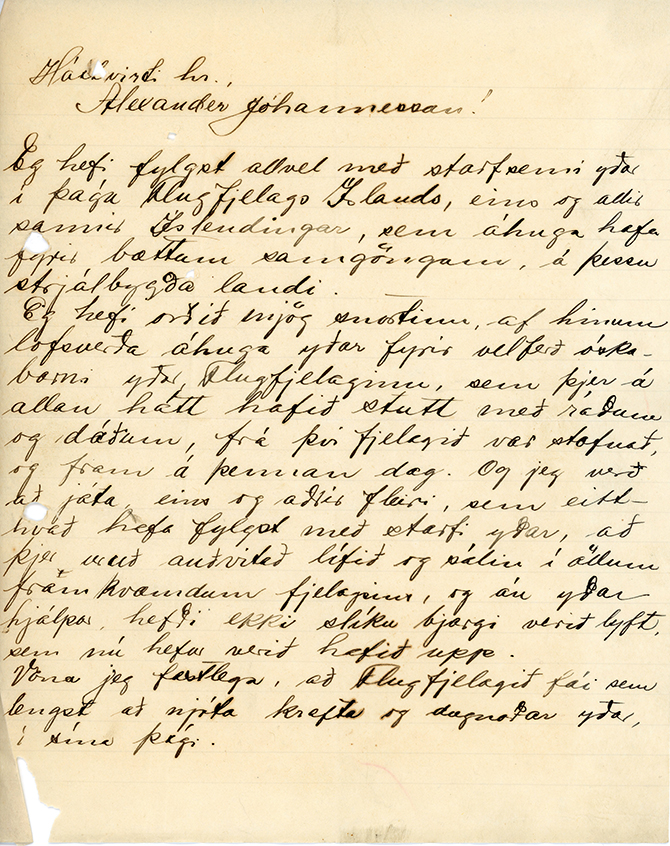 Háttvirti hr.,
Alexander Jóhannesson!
Eg hefi fylgst allvel með starfsemi yðar
í þága Flugfjelags Íslands, eins og allir
sannir Íslendingar, sem áhuga hafa
fyrir bættum samgöngum, á þessu
strjálbygða landi.
Eg hefi orðið mjög snortinn, af hinum
lofsverða áhuga yðar fyrir velferð óska-
barni yðar, Flugfjelaginu, sem þjer á
allan hátt hafið stutt með ráðum
og dáðum, frá því fjelagið var stofnað,
og fram á þennan dag. Og jeg verð
að játa, eins og aðrir fleiri, sem eitt-
hvað hefa fylgst með starfi yðar, að
þjer eruð auðvitað lífið og sálin í öllum
framkvæmdum fjelagsins, og án yðar
hjálpar, hefði ekki slíku bjargi verið lyft,
sem nú hefur verið hafið upp.
Vona jeg fastlega, að Flugfjelagið fái sem
lengst að njóta krafta og dugnaðar yðar,
í sína þági.